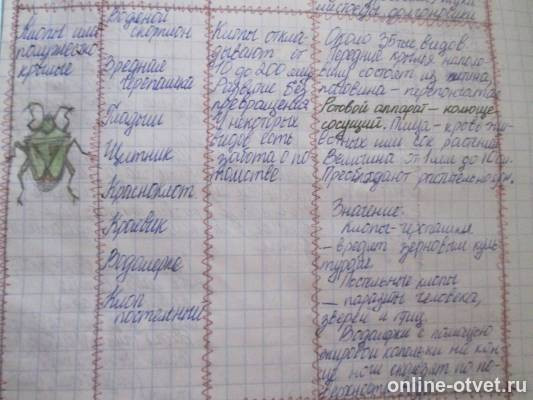 Клопы или
полужестко
крылые
Водяной
скорпион
Вредная
черепашка
Гладыш
Щитник
Красноклоп
Краевик
Водомерка
Клоп
постельный
Клопы откла
дывают от
10 до 200 яиц
Развитие без
превращения
У некоторых
видов есть
забота о по-
томстве.
долгоносики
Около 35 тыс видов.
Передние крылья наполо-
вину состоят из хитина
половина - перепончатая
Ротовой аппарат - колюще
сосущий. Пища - кровь жи-
вотных или сок растений
Величина от 1 мм до 10 см.
Преобладают растительнояд.
Значение:
Клопы - черепашки
- вредят зерновым куль
турам
Постельные клопы
- паразиты человека,
зверей и птиц.
Водомерки с помощью
жировой капельки на кон-
це ноги скользят по по-
верхности
online-otvet.ru